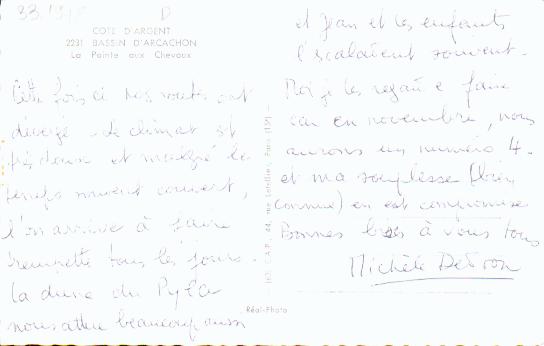 33.197
D
COTE D'ARGENT
2231 BASSIN D'ARCACHON
La Pointe aux Chevaux
Cette fois ci nos routes ont
divergé - le climat est
très doux et malgré le
temps souvent couvert,
l'on arrive à faire
trempette tous les jours.
La dune du Pyla
nous attire beaucoup aussi
et Jean et les enfants
l'escaladent souvent.
Moi je les regarde faire
car en novembre, nous
aurons un numéro 4.
et ma souplesse (bien
connue) en est compromise
Bonnes bises à vous tous
Michèle
Réal-Photo